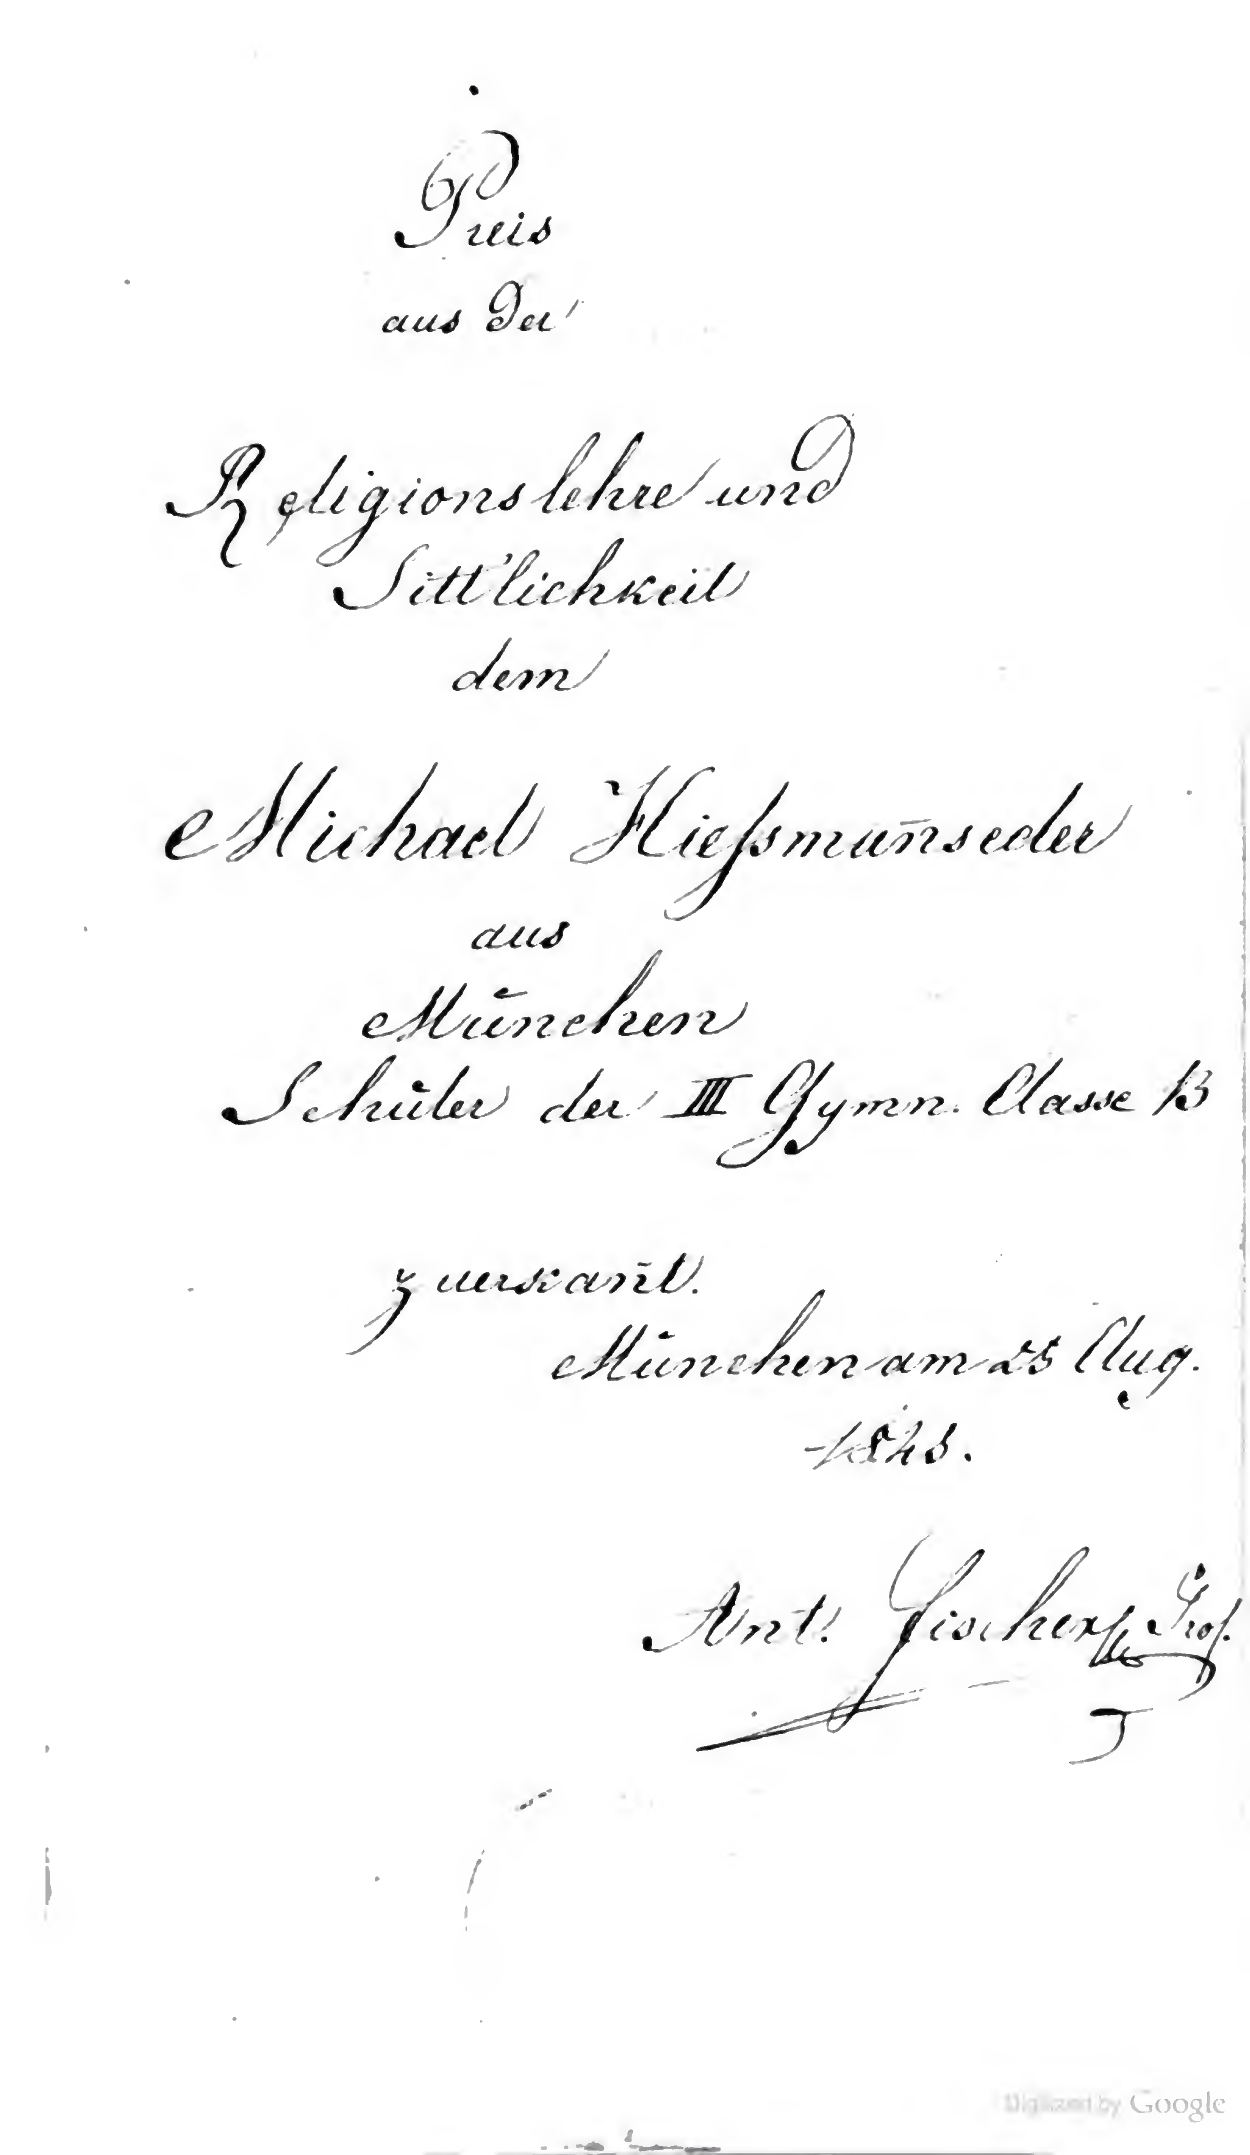 Preis
aus der
Religionslehre und
Sittlichkeit
dem
Michael Kießmun̄seder
aus
München
Schüler der III Gymn. Classe B
zuerkan̄t.
München am 25 Aug.
1848.
Ant. Fischer Prof.
Digitized by Google